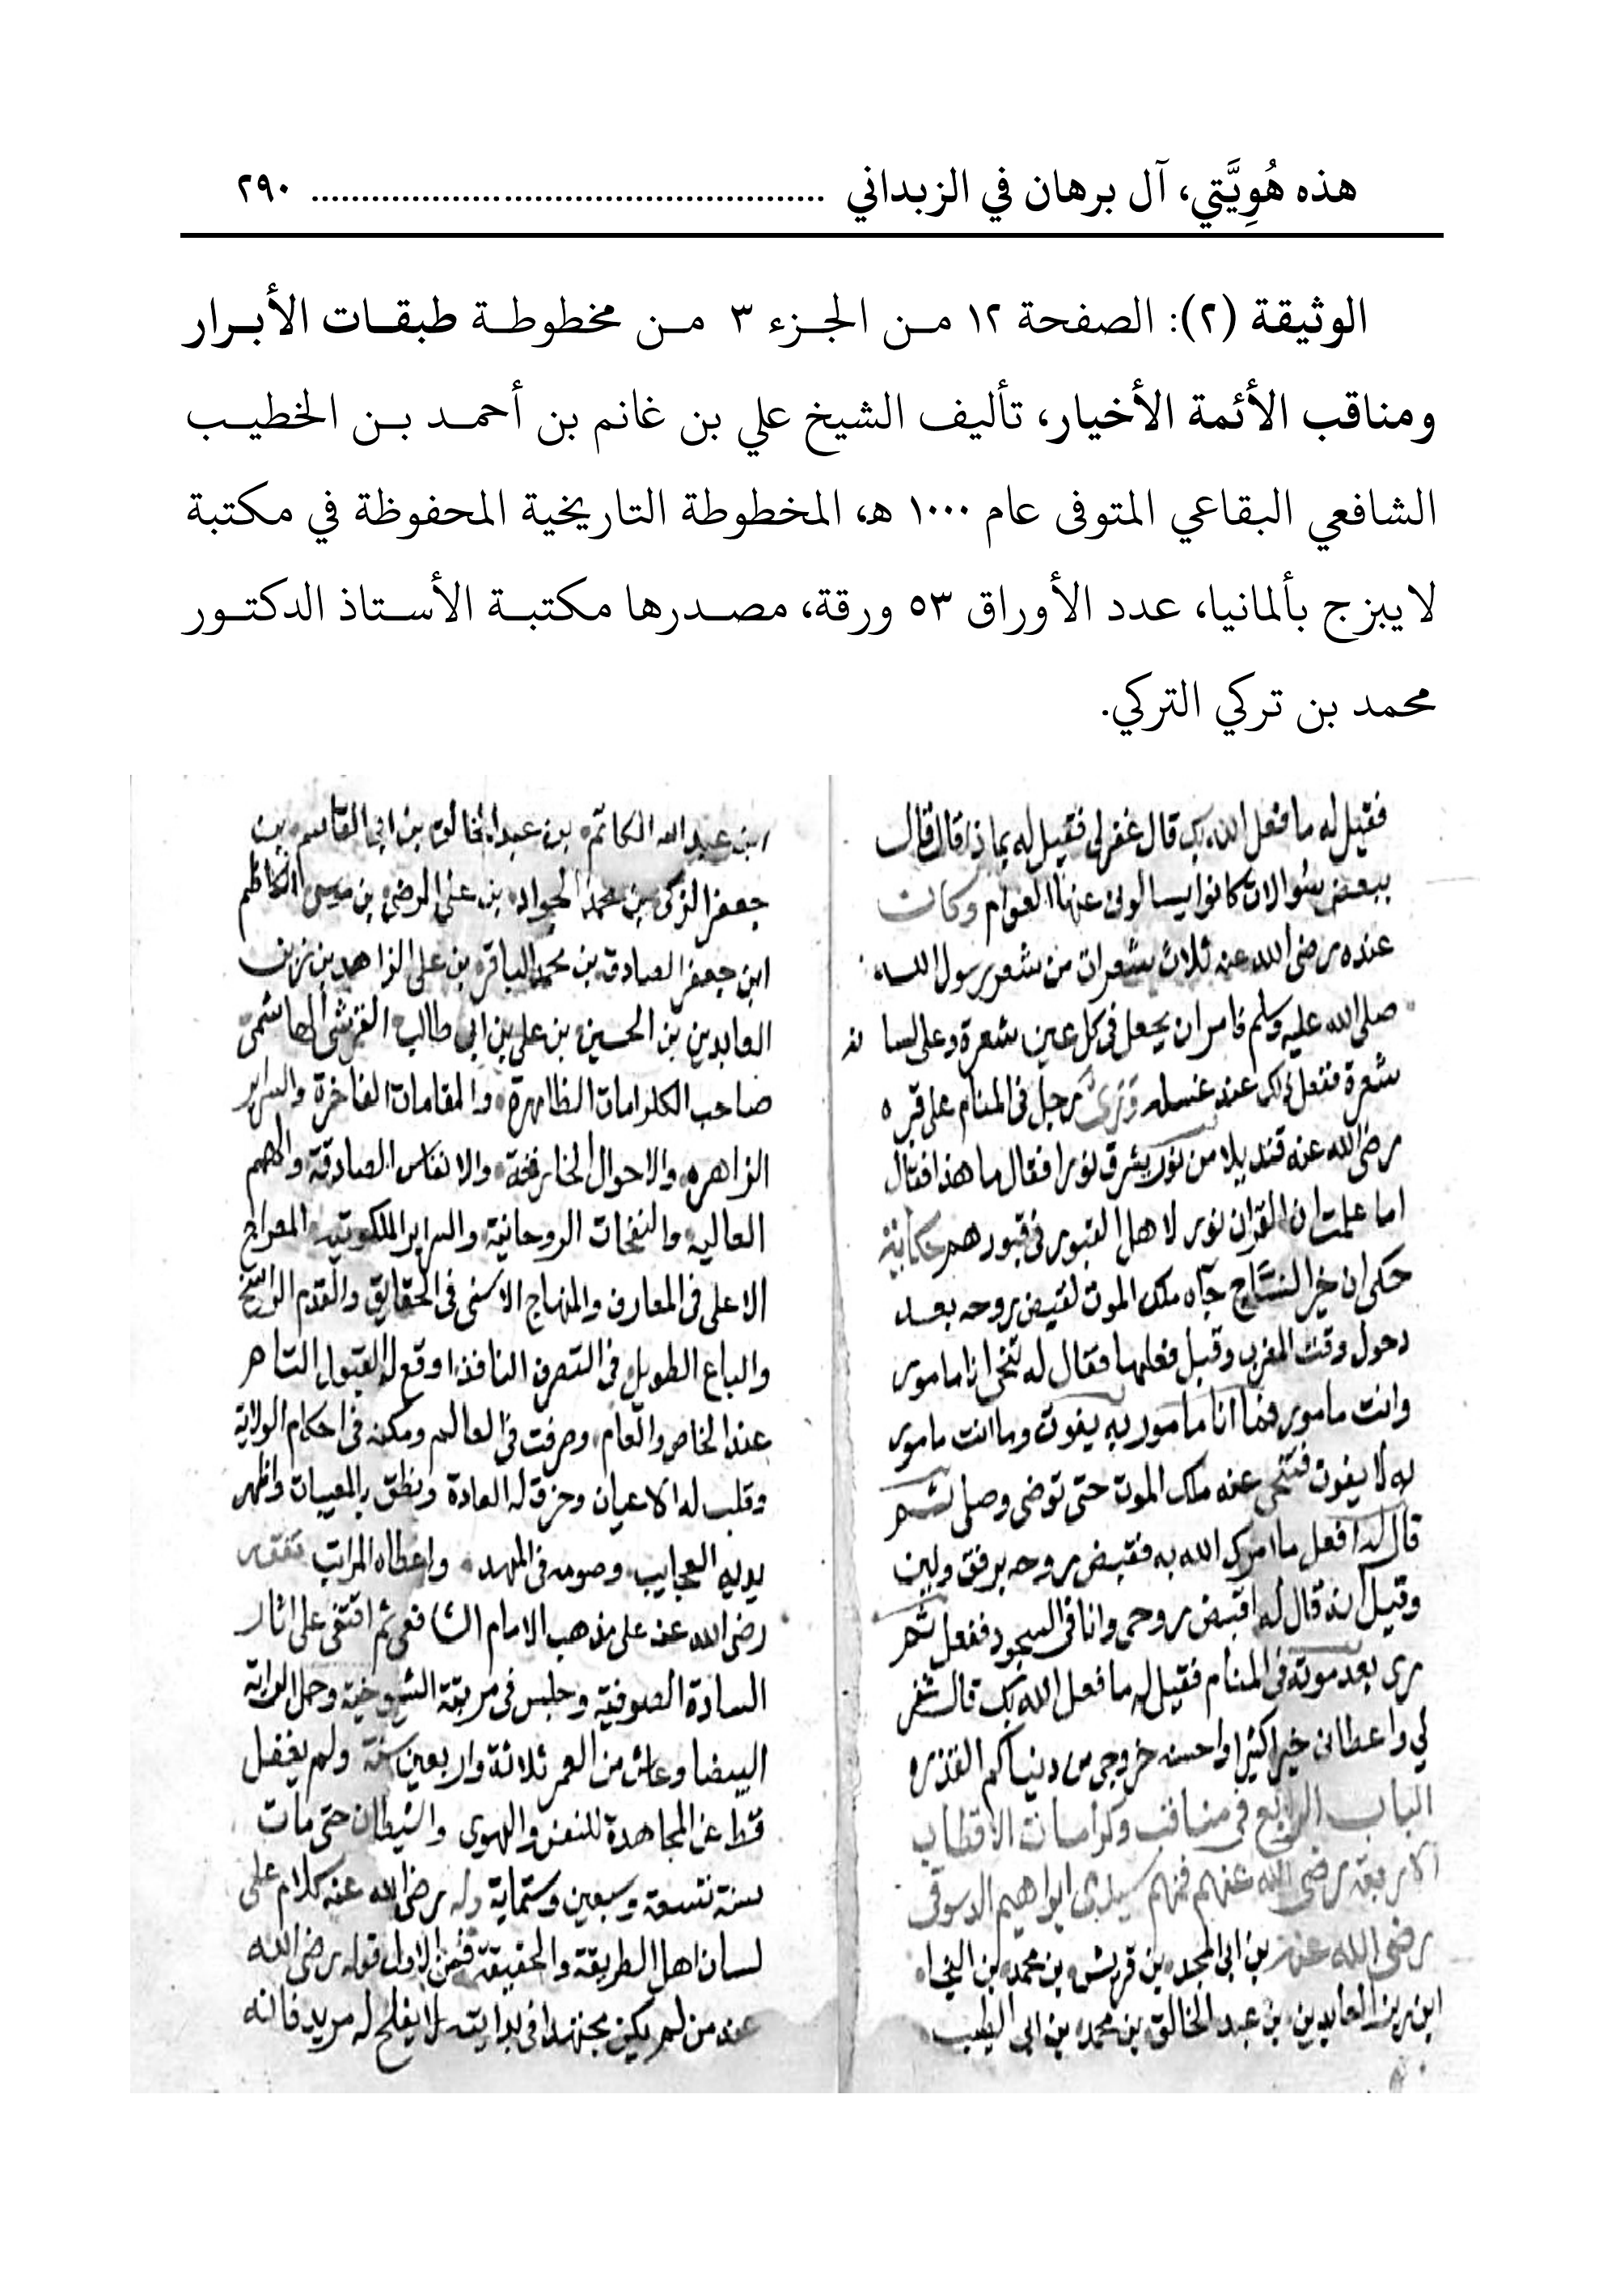 هذه هُوِيَّتي، آل برهان في الزبداني ................................................... ٢٩٠
الوثيقة (٢): الصفحة ١٢ من الجزء ٣ من مخطوطة طبقات الأبرار
ومناقب الأئمة الأخيار، تأليف الشيخ علي بن غانم بن أحمد بن الخطيب
الشافعي البقاعي المتوفى عام ١٠٠٠ هـ، المخطوطة التاريخية المحفوظة في مكتبة
لايبزج بألمانيا، عدد الأوراق ٥٣ ورقة، مصدرها مكتبة الأستاذ الدكتور
محمد بن تركي التركي.
فقيل له ما فعل الله بك قال غفر لي فقيل له بماذا قال قال
ببعض سؤالات كانوا يسالوني عنها العوام وكان
عنده رضي الله عنه ثلاث شعرات من شعر رسول الله
صلى الله عليه وسلم فامر ان يجعل في كل عين شعرة وعلى لسانه
شعرة ففعل ذلك عند غسله رجل في المنام على قبره
رضي الله عنه قنديلا من نور يشرق نورا فقال ما هذا فقال
اما علمت ان القران نور لاهل القبور في قبورهم حكاية
حكى ان خير النساج جآه ملك الموت لقبض روحه بعد
دخول وقت المغرب وقبل فعلها فقال له تنحى انا مامور
وانت مامور فما انا مامور به يفوت وما انت مامور
به لا يفوت فتنحى عنه ملك الموت حتى توضى وصلى ثم
قال له افعل ما امرك الله به فقبض روحه برفق ولين
وقيل انه قال له اقبض روحي وانا في السجود ففعل ثم
رى بعد موته في المنام فقيل له ما فعل الله بك قال غفر
لي واعطاني خيرا كثيرا واحسنه خروجي من دنياكم القذره
الباب الرابع في مناقب وكرامات الاقطاب
الاربعة رضي الله عنهم فمنهم سيدي ابراهيم الدسوقي
رضي الله عنه بن ابي المجد بن قريش بن محمد بن النجا
ابن زين العابدين بن عبد الخالق بن محمد بن ابي الطيب
ابن عبد الله الكاتم بن عبد الخالق بن ابي القاسم بن
جعفر الزكي بن محمد الجواد بن علي الرضي بن موسى الكاظم
ابن جعفر الصادق بن محمد الباقر بن علي الزاهد بن زين
العابدين بن الحسين بن علي بن ابي طالب القرشي الهاشمي
صاحب الكرامات الظاهرة والمقامات الفاخرة والسراير
الزاهره والاحوال الخارقة والانفاس الصادقة والهمم
العاليه والنفحات الروحانية والسراير الملكوتيه المعراج
الاعلى في المعارف والمنهاج الاسنى في الحقايق والقدم الراسخ
والباع الطويل في التصرف النافذ اوقع له القبول التا
عند الخاص والعام وصرفت في العالم ومكنه في احكام الولاية
وقلب له الاعيان وخرق له العادة ونطق بالمغيبات واظهر
يديه العجايب وصومه في المهد واعطاه المراتب تفقه
رضي الله عنه على مذهب الامام الشافعي ثم اقتفى على اثار
السادة الصوفية وجلس في مرتبة الشيوخية وحمل الراية
البيضا وعاش من العمر ثلاثة واربعين سنة ولم يغفل
قط عن المجاهدة للنفس والهوى والشيطان حتى مات
سنة وسبعين وستماية وله رضي الله عنه كلام على
لسان اهل الطريقة والحقيقة فمن الاول قوله رضي الله
عنه من لم يكن مجتهدا في بدايته لا يفلح له مريد فانه